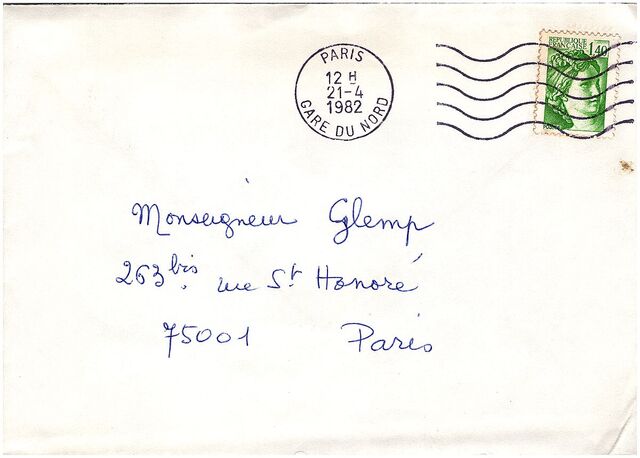 PARIS
12 H
21-4
1982
GARE DU NORD
REPUBLIQUE
FRANÇAISE
1,40
Monseigneur Glemp
263 bis rue St Honoré
75001 Paris